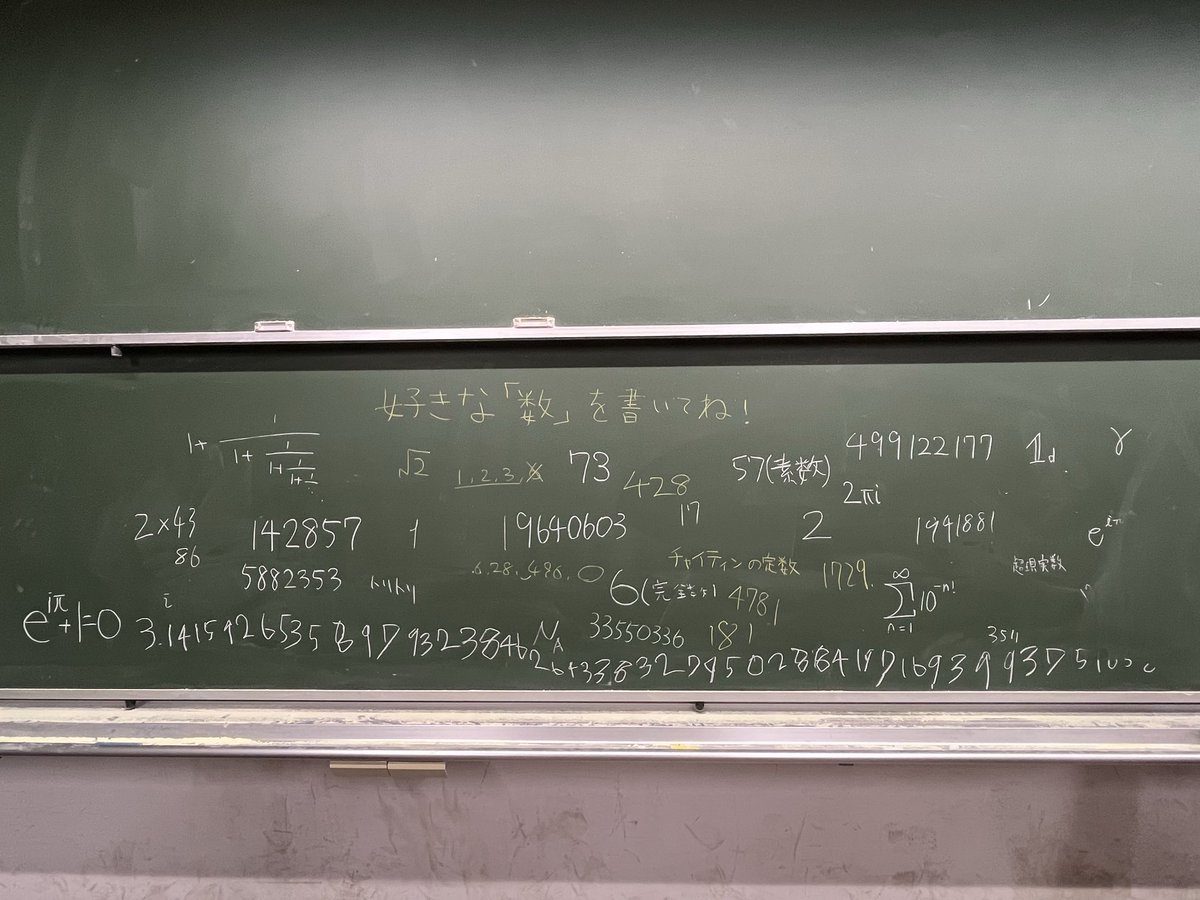 好きな「数」を書いてね！
1+1/(1+1/(1+1/(1+1/
√2
1,2,3,
73
428
57(素数)
499122177
1d
γ
2×43
86
142857
1
19640603
17
2πi
2
1941881
e^iπ
5882353
トリトリ
6.28.496.
6(完全数)
チャイティンの定数
4781
1729.
∞ Σ n=1 10^-n!
超現実数
e^iπ+1=0
i
3.1415926535897932384626433832795028841971693993751
N_A
33550336
181
3511